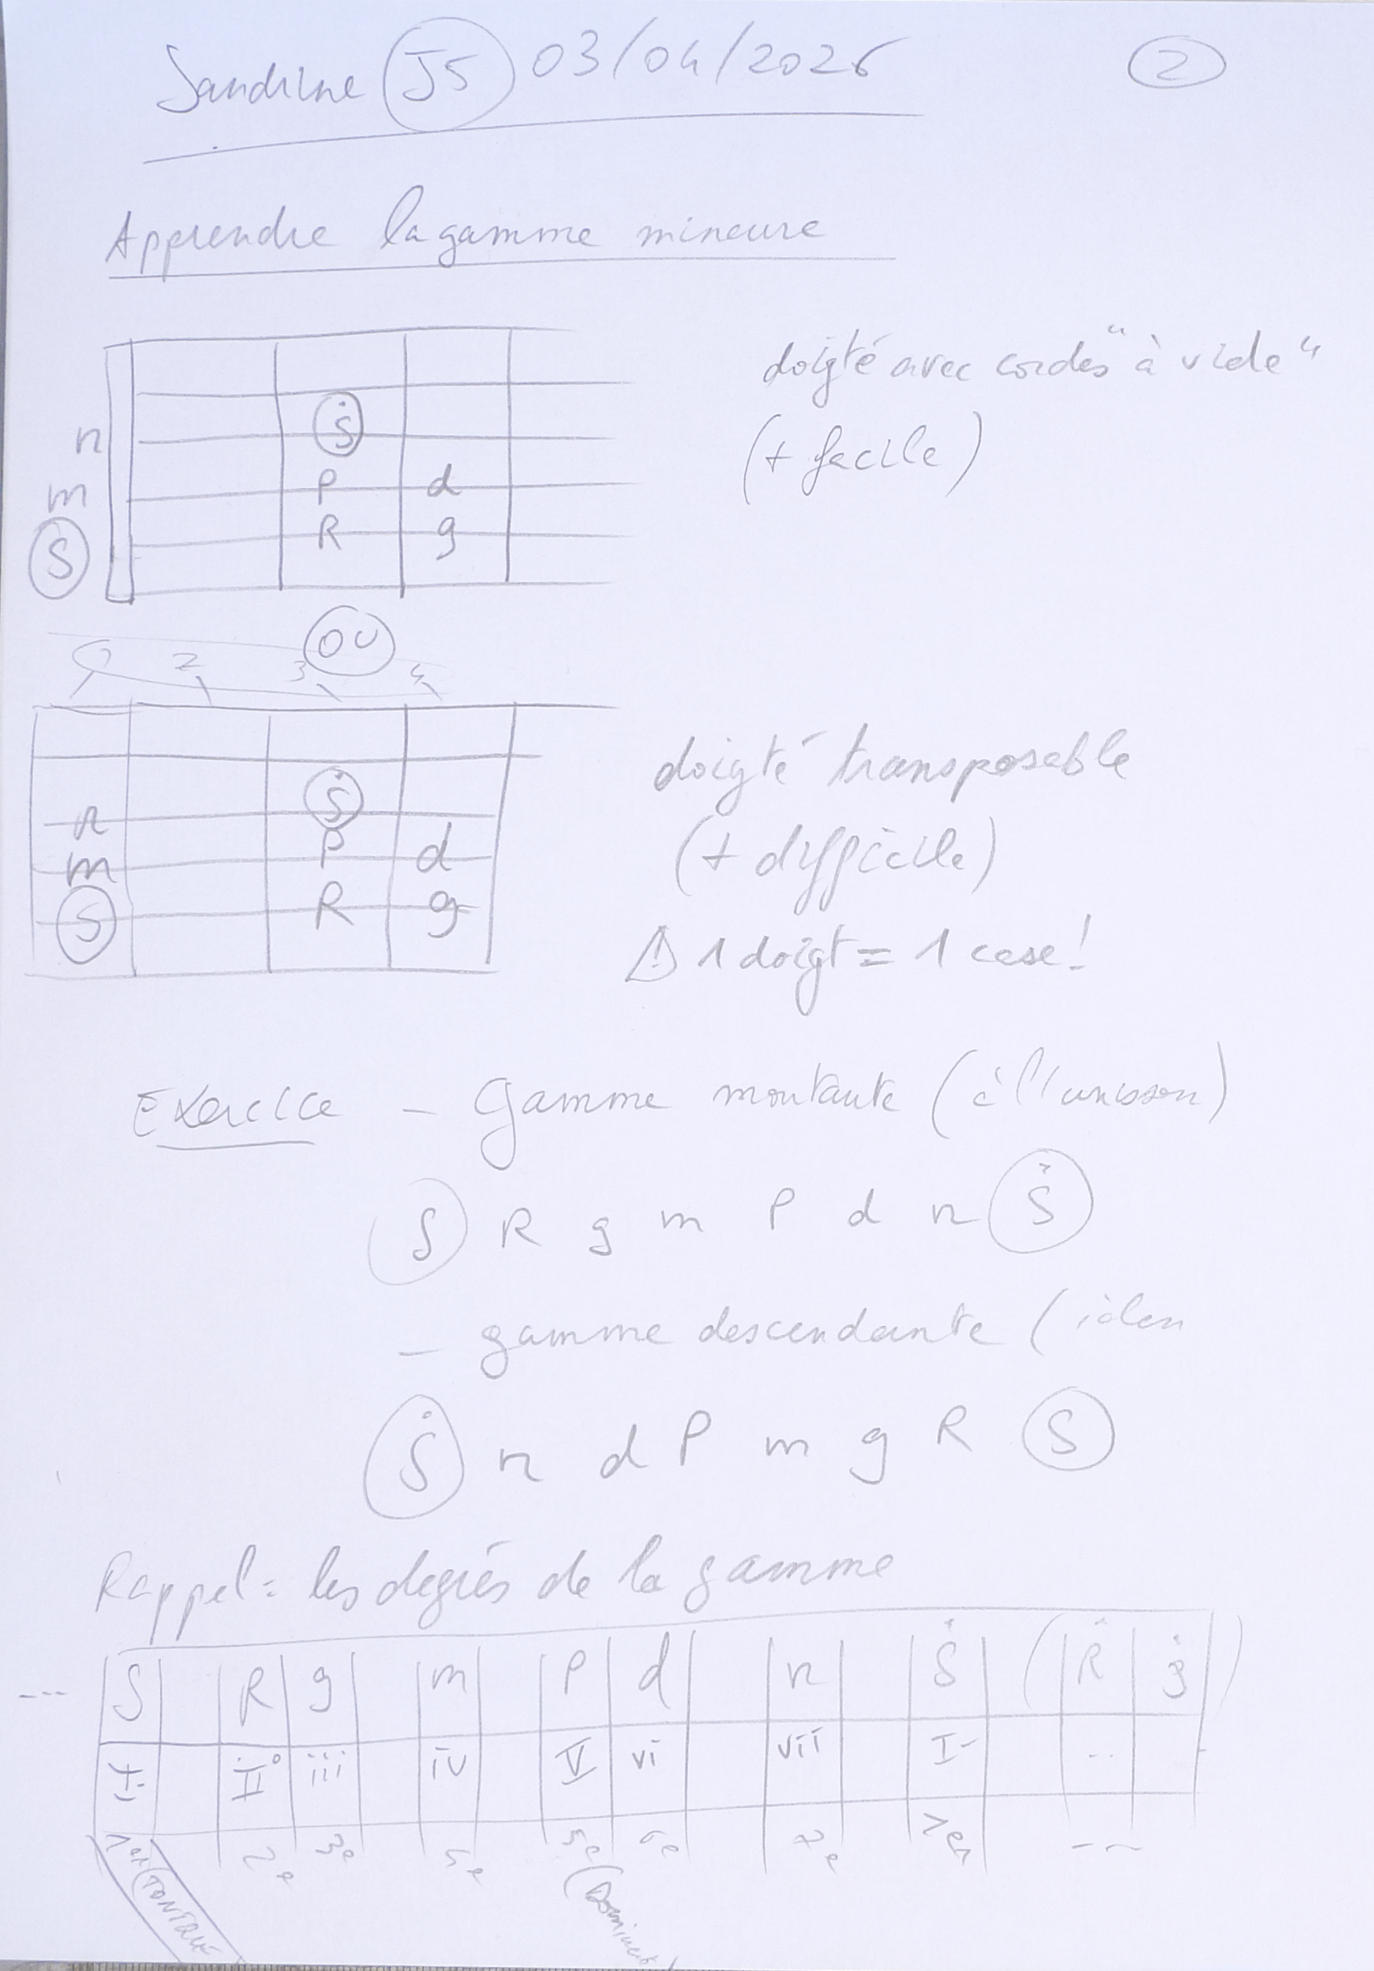 Sandrine J5 03/04/2026 2
Apprendre la gamme mineure
doigté avec cordes "à vide"
(+ facile)
Ṡ
n
P d
m
R g
S
OU
1 2 3 4
Ṡ
n
P d
m
R g
S
doigté transposable
(+ difficile)
⚠ 1 doigt = 1 case!
Exercice - Gamme montante (à l'unisson)
S R g m P d n Ṡ
- gamme descendante (idem
Ṡ n d P m g R S
Rappel: les degrés de la gamme
--- S R g m P d n Ṡ (Ṙ ġ)
I- II° iii iv V vi vii I- ..
1er 2e 3e 4e 5e 6e 7e 1er ---
(TONIQUE
(Dominante